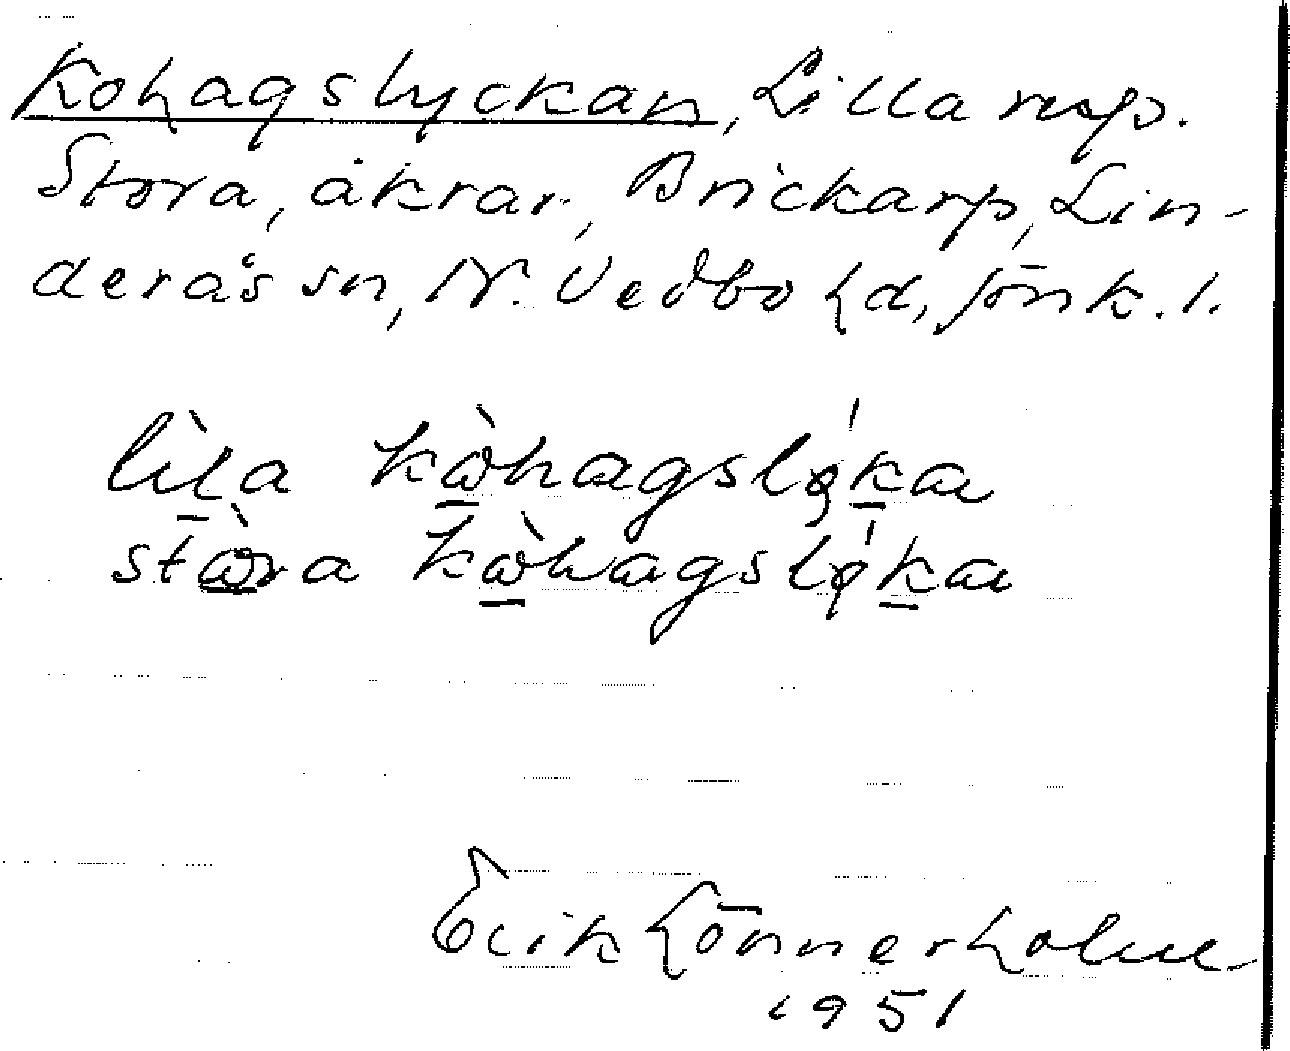 Kohagslyckan, Lilla resp.
Stora, åkrar, Brickarp, Lin-
deräs sn, N. Vedbo hd, Jönk. l.
lìl̲a kὼ̲hagslǫ́k̲a
stὼ̲ra kὼ̲hagslǫ́k̲a
Erik Lönnerholm
1951